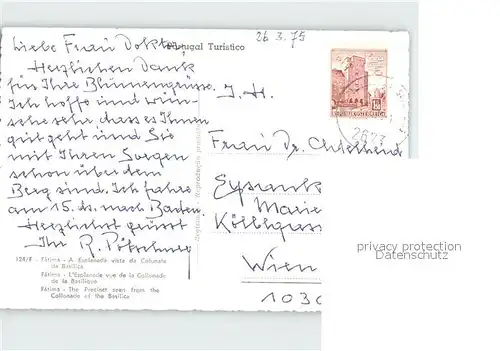 26.3.75
Portugal Turistico
Liebe Frau Doktor,
Herzlichen Dank
für Ihre Blumengrüsse.
Ich hoffe und wün-
sche sehr, dass es Ihnen
gut geht und Sie
mit Ihren Sorgen
schon über dem
Berg sind. Ich fahre
am 15. ds. nach Baden.
Herzlichst grüsst
Ihr R.
I. H.
Frau Dr.
Marie
Wien
1030
2673
REPUBLIK ÖSTERREICH
124/F - Fátima - A Esplanada vista da Colunata
da Basílica
Fátima - L'Esplanade vue de la Collonade
de la Basilique
Fátima - The Precinct seen from the
Collonade of the Basilica
privacy protection
Datenschutz